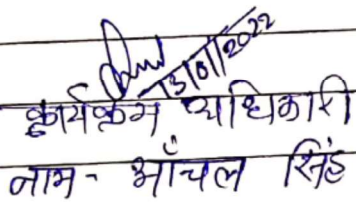 13/01/2022
कार्यक्रम अधिकारी
नाम - आँचल सिंह